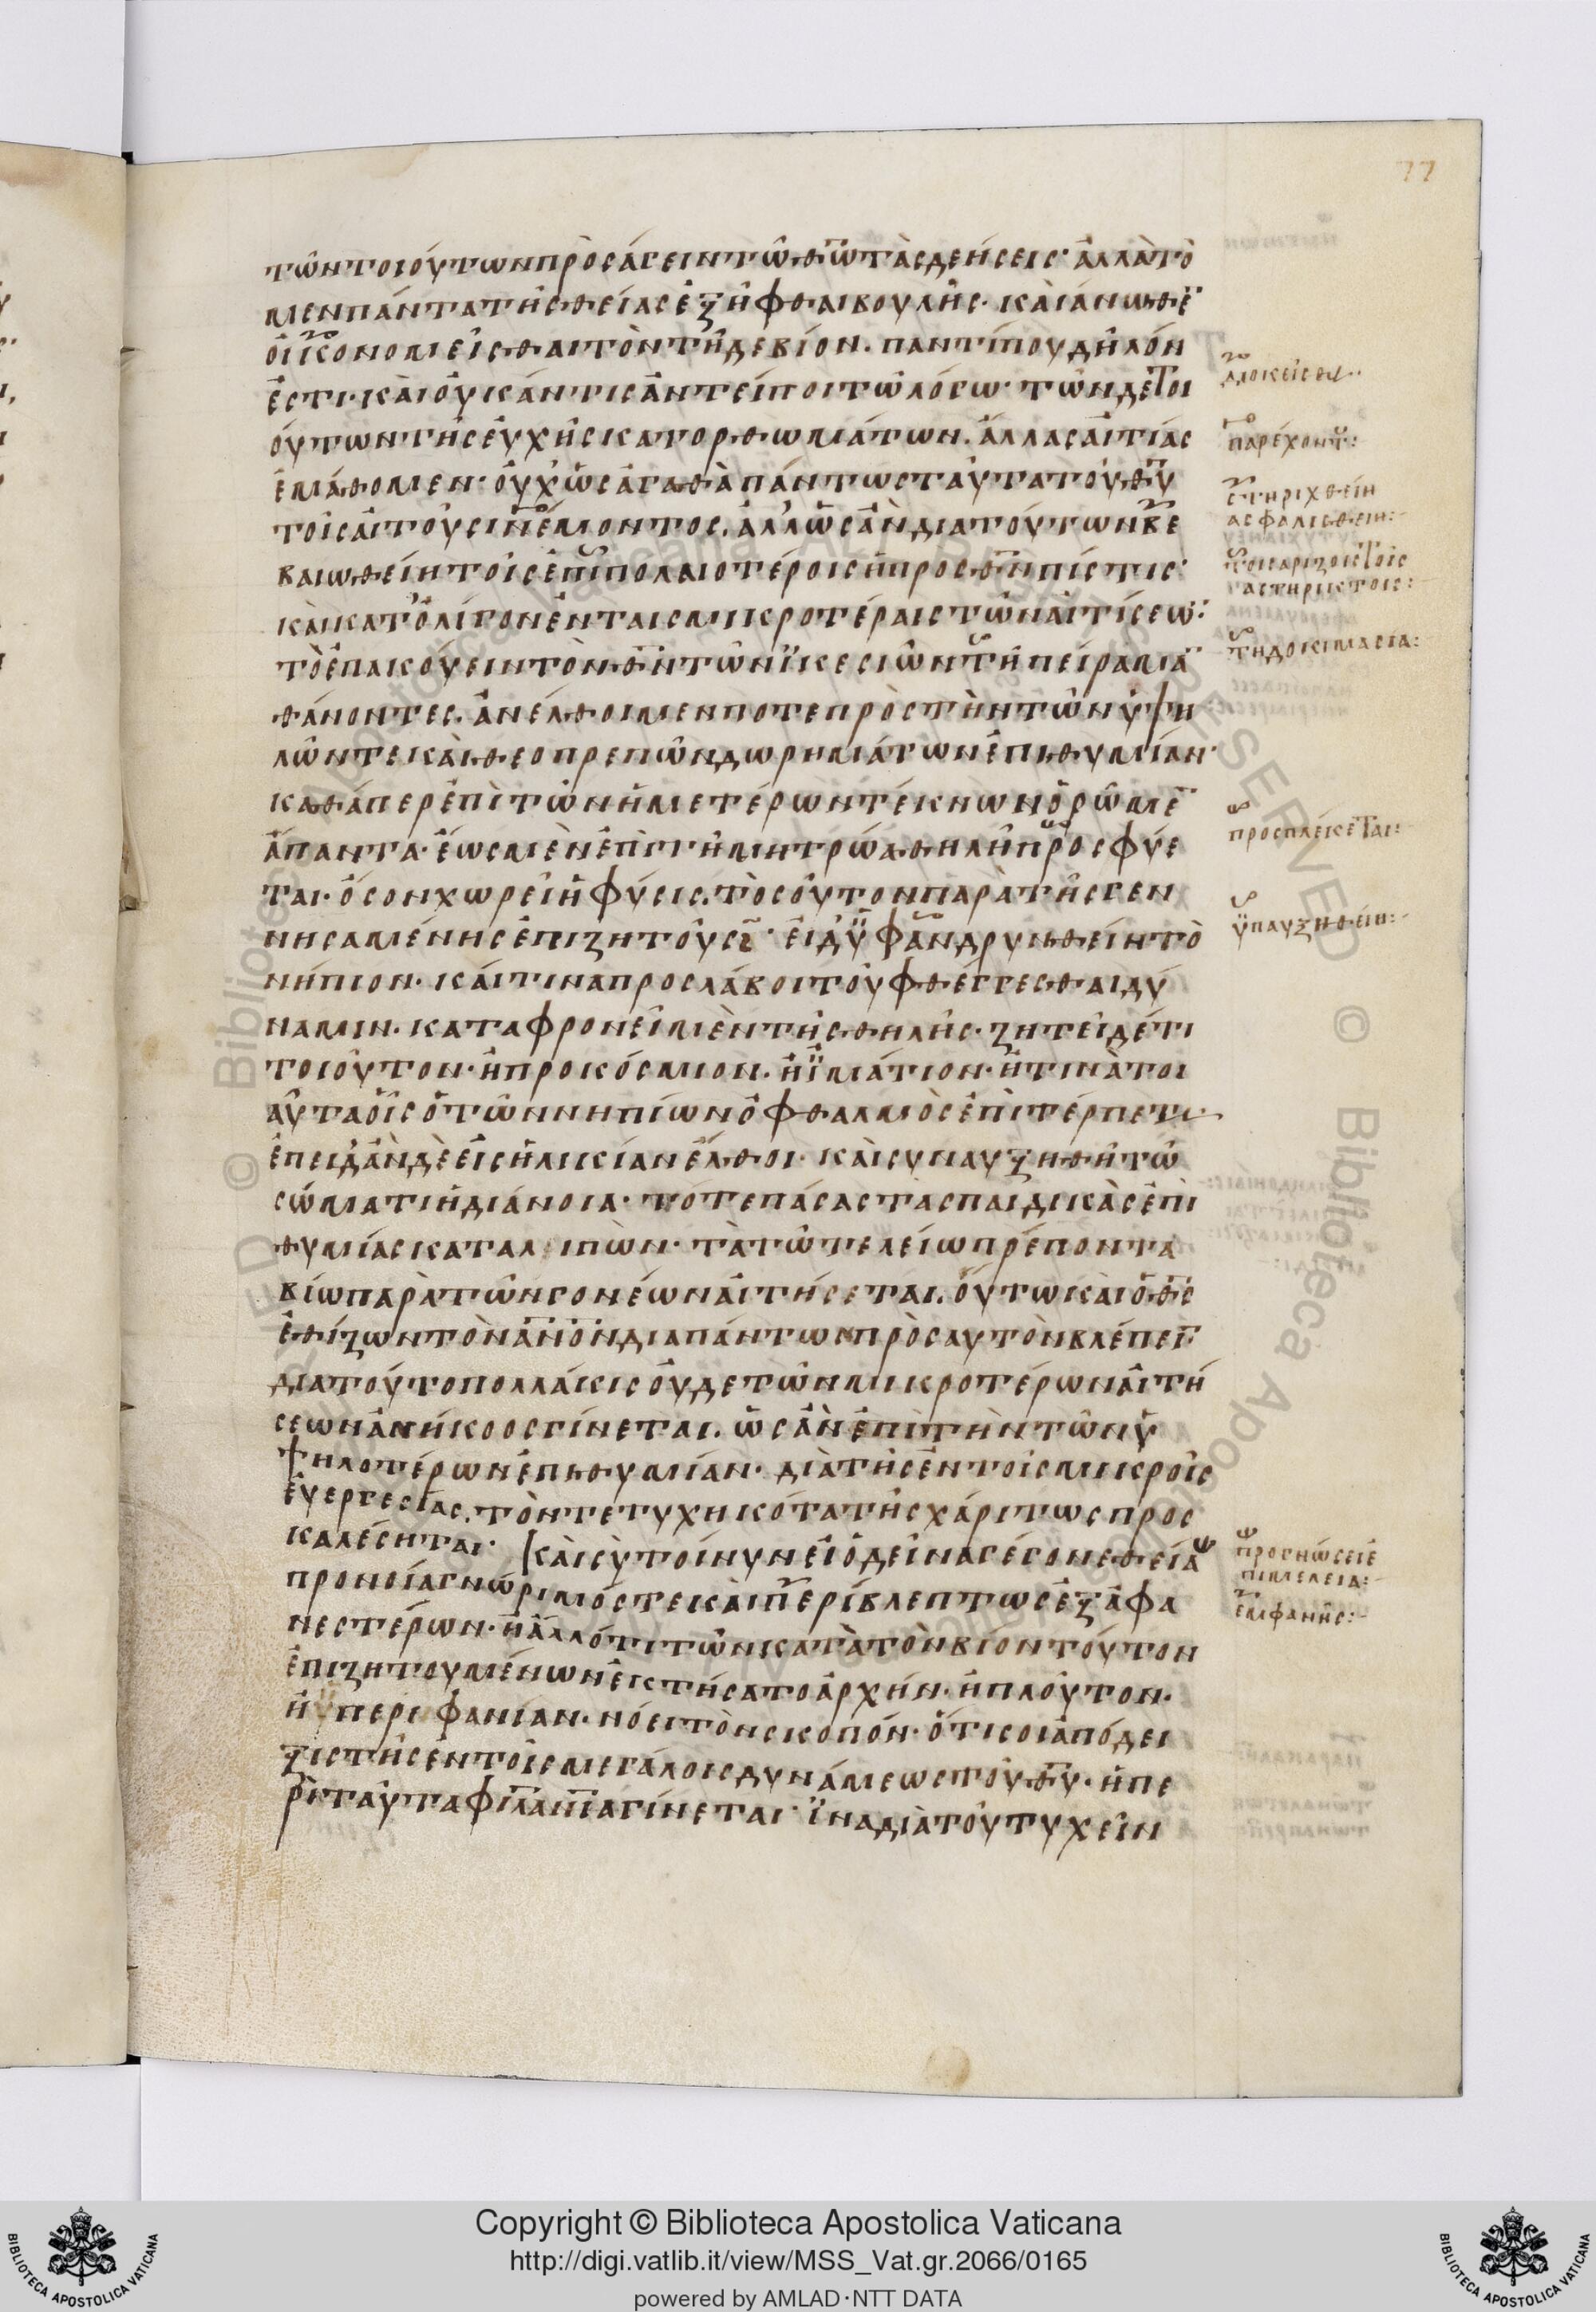 77
τῶν τοιούτων πρὸσάγειν τῶ θῶ τὰς δεήσεις· ἀλλὰ τὸ
μεν πάντα τῆς θείας ἐξῆφθαι βουλῆς· καὶ ἄνωθε
οἰκονομεῖσθαι τὸν τῆδε βίον. παντί που δῆλόν
ἐστι· καὶ οὐκ ἄν τις ἀντείποι τῶ λόγω· τῶν δε τοι
ούτων τῆς εὐχῆς κατορθωμάτων. ἄλλας αἰτίας
ἐμάθομεν· οὐχ ὡς ἀγαθὰ πάντως ταῦτα τοῦ θυ
τοῖς αἰτοῦσι νέμοντος. ἀλλ' ὡς ἂν δια τούτων βε
βαιωθείη τοῖς ἐπιπολαιοτέροις ἡ προς θν πίστις·
καὶ κατ' ὀλίγον ἐν ταις μικροτέραις τῶν αἰτίσεω
τὸ ἐπακούειν τὸν θν τῶν ἱκεσιῶν τῆ πείρα μα
θάνοντες. ἀνέλθοιμεν ποτε πρὸς τὴν τῶν ὑψη
λῶν τε καὶ θεοπρεπῶν δωρημάτων ἐπιθυμίαν·
καθάπερ ἐπὶ τῶν ἡμετέρων τέκνων ὁρῶμε
ἅπαντα· ἕως μὲν ἐπὶ τῆ μητρώα θηλῆ προσφύε
ται· ὅσον χωρεῖ ἡ φύσις. τοσοῦτον παρὰ τῆς γεν
νησαμένης ἐπιζητοῦσι· εἰ δ' ὑφανδρυνθείη τὸ
νήπιον· καί τινα προσλάβοι τοῦ φθέγγεσθαι δύ
ναμιν. καταφρονεῖ μὲν τῆς θηλῆς· ζητεῖ δέ τι
τοιοῦτον· ἢ προκόσμιον. ἢ ἱμάτιον· ἤ τινα τοι
αῦτα οἷς ὁ τῶν νηπίων ὀφθαλμὸς ἐπιτέρπεται
ἐπειδ' ἂν δὲ εἰς ἡλικίαν ἔλθοι· καὶ συναυξηθῆ τῶ
σώματι ἡ διάνοια· τότε πάσας τὰς παιδικὰς ἐπι
θυμίας καταλιπὼν· τὰ τῶ τελείω πρέποντα
βίω παρὰ τῶν γονέων αἰτήσεται. οὕτω καὶ ὁ θς
ἐθίζων τὸν ἀνον δια πάντων πρὸς αυτὸν βλέπει
δια τοῦτο πολλάκις οὐδε τῶν μικροτέρων αἰτή
σεων ἀνήκοος γίνεται. ὡς ἂν ἐπὶ τὴν τῶν ὑ
ψηλοτέρων ἐπιθυμίαν· διὰ τῆς ἐν τοῖς μικροῖς
εὐεργεσίας. τὸν τετυχηκότα τῆς χάριτως προς
καλέσηται· καὶ σὺ τοίνυν εἰ ὁ δεῖνα γέγονε θεία
προνοία γνώριμός τε καὶ περίβλεπτως ἐξ ἀφα
νεστέρων· ἢ ἄλλό τι τῶν κατὰ τὸν βίον τοῦτον
ἐπιζητουμένων ἐκτήσατο ἀρχήν· ἢ πλοῦτον·
ἢ ὑπεριφανίαν· νόει τὸν σκοπόν· ὅτι σοι ἀπόδει
ξις τῆς ἐν τοῖς μεγάλοις δυνάμεως τοῦ θυ· ἡ πε
ρὶ ταῦτα φιλανία γίνεται· ἵνα διὰ τοῦ τυχεῖν
διοικεῖσθαι
παρέχοντος:
στηριχθείη
ασφαλισθειη:
τοις
αστηρικτοις:
τῆ δοκιμασία:
προσπλέκεται:
ὑπαυξηθείη:
προγνώσει ἐ
πιμελεια:
ἐμφανής:
Copyright © Biblioteca Apostolica Vaticana
http://digi.vatlib.it/view/MSS_Vat.gr.2066/0165
powered by AMLAD·NTT DATA